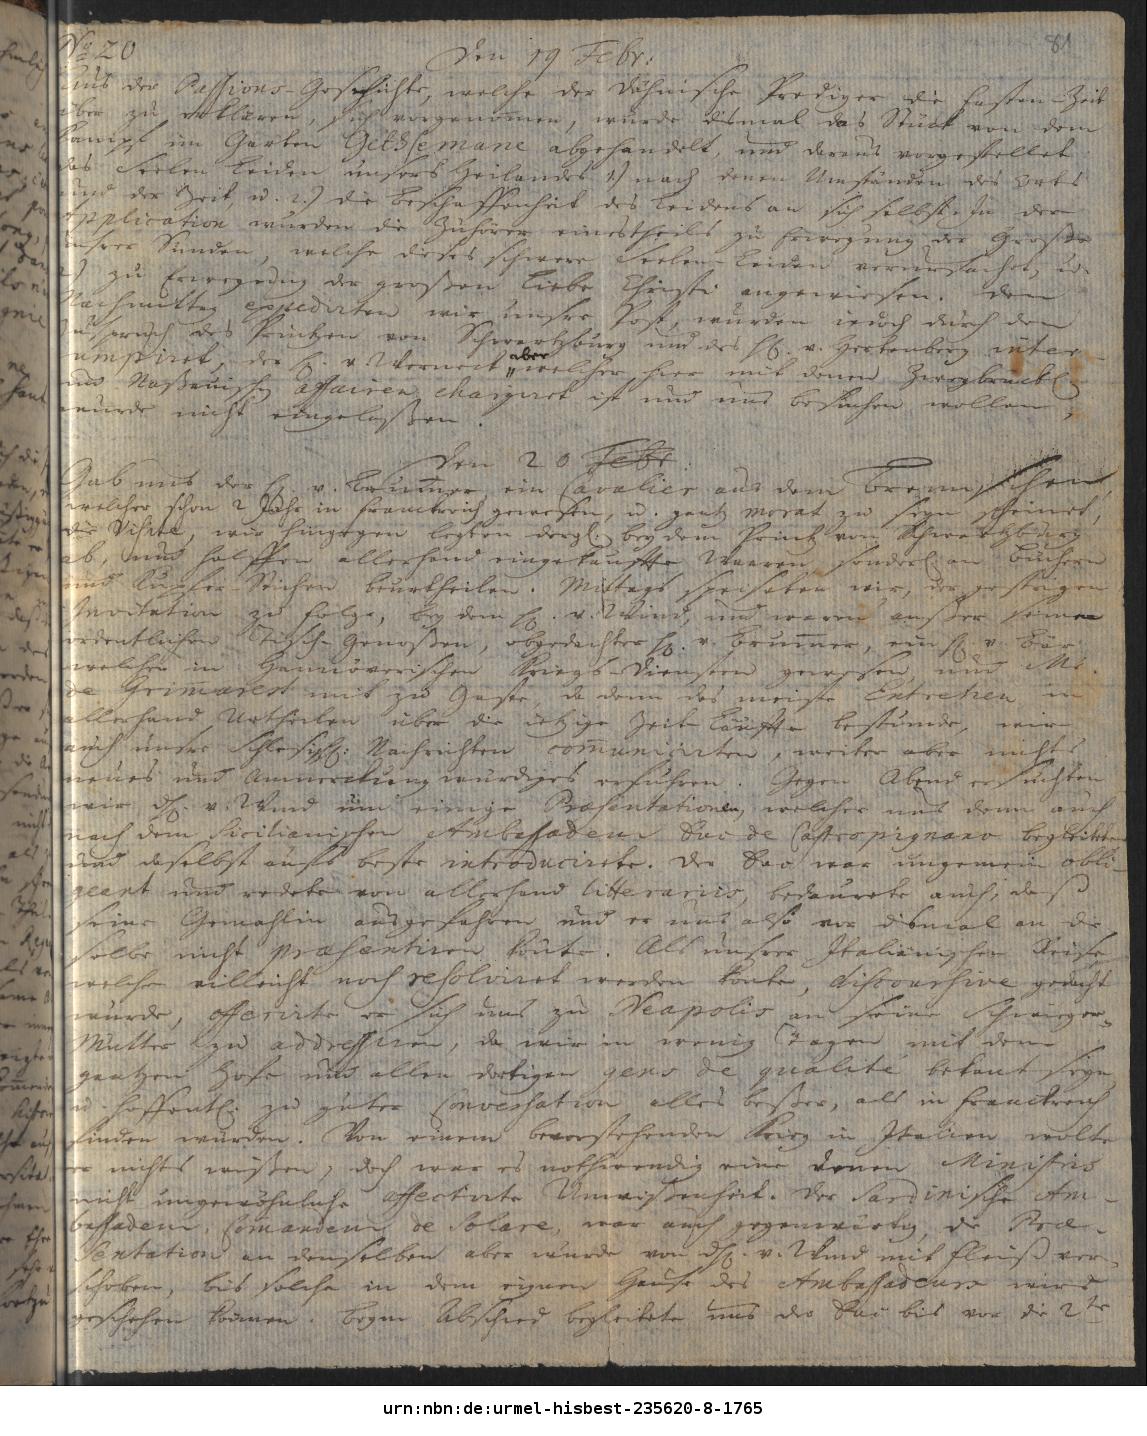 81
No 20 den 19 Febr:
Aus der Passions-Geschichte, welche der Dähnische Prediger die Fasten-Zeit
über zu erklären, sich vorgenomen, wurde dismal das Stück von dem
Kampf im Garten Gethsemane abgehandelt, und daraus vorgestellet
das Seelen Leiden unsers Heilandes 1) nach denen Umständen des Orts
und der Zeit, u. 2.) die Beschaffenheit des Leidens an sich selbst. In der
Application wurden die Zuhörer einestheils zu Erwegung der Größe
ihrer Sünden, welche dieses schwere Seelen-Leiden verursachet, u.
2) zu Erwegung der großen Liebe Christi angewiesen. Den
Nachmittag expedirten wir unsre Post, wurden iedoch durch den
Zuspruch des Printzen von Schwartzburg und des H. v. Hertenberg inter-
rumpiret, der H. v. Werneck aber, welcher hier mit denen Zweybrück.
und Naßauisch. affairen chargiret ist und uns besuchen wollen,
wurde nicht eingelaßen.
den 20 Febr.
Gab uns der H. v. Brummer, ein Cavalier aus dem Bremischen,
welcher schon 2 Jahr in Franckreich gewesen, u. gantz morat zu seyn scheinet,
die Visite, wir hingegen legten dergl. bey dem Printz von Schwartzburg
ab, und halffen allerhand eingekauffte Waaren, sonderl. an Büchern
und Kupfer-Stichen beurtheilen. Mittags speiseten wir, der gestrigen
Invitation zu folge, bey dem H. v. Wind, und waren außer seinen
ordentlichen Tisch-Genoßen, obgedachter H. v. Brummer, ein H. v. Bär
welcher in Hannöverischen Kriegs-Diensten gewesen, und Mr.
de Grimarest mit zu Gaste, da denn das meiste Entretien in
allerhand Urtheilen über die ietzige Zeit-Läuffte bestunde, wir
auch unsre Schlesisch: Nachrichten communicirten, weiter aber nichts
neues und anmerckung würdiges erfuhren. Gegen Abend ersuchten
wir H. v. Wind um einige Praesentationen, welcher uns denn auch
nach dem Sicilianischen Ambassadeur Duc de Castropignano begleitete
und daselbst aufs beste introducirete. Der Duc war ungemein obli-
geant und redete von allerhand litterariis, bedaurete auch, daß
seine Gemahlin ausgefahren und er uns also vor dismal an die
selbe nicht praesentiren könte. Als unsrer Italiänischen Reise,
welche villeicht noch resolviret werden konte, discoursive gedacht
wurde, offerirte er sich uns zu Neapolis an seine Schwieger-
Mutter zu addressiren, da wir in wenig Tagen mit dem
gantzen Hofe und allen dortigen gens de qualité bekant seyn,
u. hoffentl. zu guter Conversation alles beßer, als in Franckreich
finden würden. Von einem bevorstehenden Krieg in Italien wolte
er nichts wißen, doch war es nothwendig eine denen Ministris
nicht ungewöhnliche affectirte Unwißenheit. Der Sardinische Am-
bassadeur, Comandeur de Solare, war auch gegenwärtig, die Prae-
sentation an denselben aber wurde von H. v. Wind mit Fleiß ver-
schoben, bis solche in dem eignen Hause des Ambassadeurs wird
geschehen können. Beym Abschied begleitete uns der Duc bis vor die 2te
urn:nbn:de:urmel-hisbest-235620-8-1765